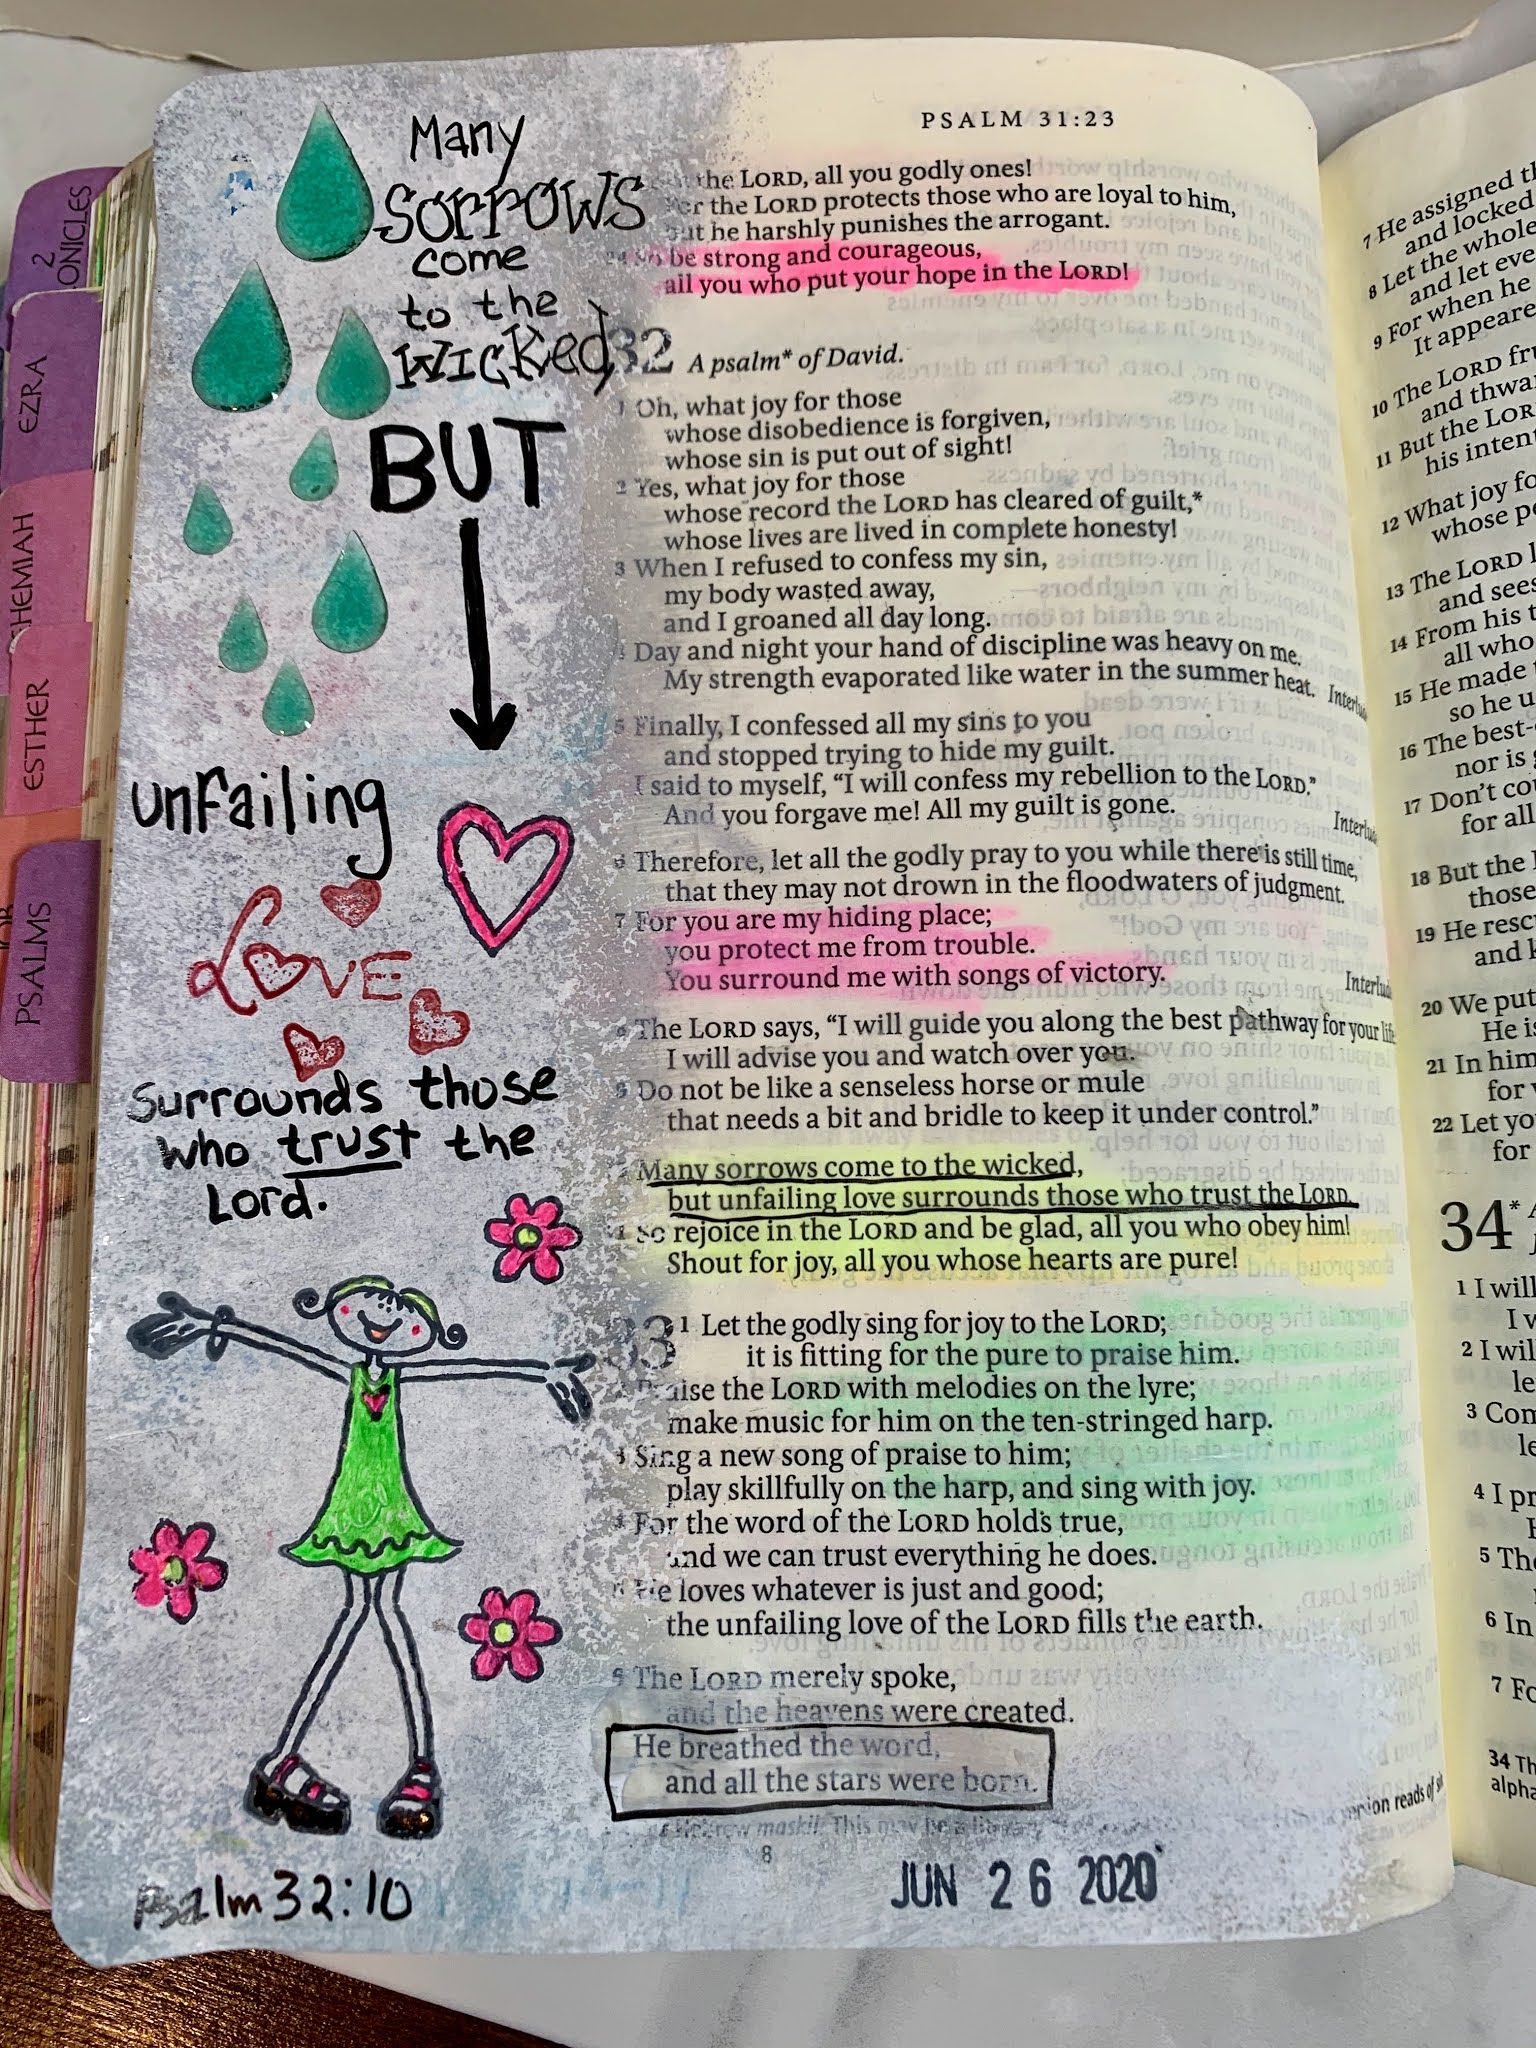 2
ONICLES
EZRA
HEMIAH
ESTHER
PSALMS
Many
SORROWS
come
to the
WICKED,
BUT
unfailing
LOVE
Surrounds those
who trust the
Lord.
Psalm 32:10
PSALM 31:23
the LORD, all you godly ones!
the LORD protects those who are loyal to him,
but he harshly punishes the arrogant.
24 So be strong and courageous,
all you who put your hope in the LORD!
32 A psalm* of David.
1 Oh, what joy for those
whose disobedience is forgiven,
whose sin is put out of sight!
2 Yes, what joy for those
whose record the LORD has cleared of guilt,*
whose lives are lived in complete honesty!
3 When I refused to confess my sin,
my body wasted away,
and I groaned all day long.
Day and night your hand of discipline was heavy on me.
My strength evaporated like water in the summer heat. Interlude
5 Finally, I confessed all my sins to you
and stopped trying to hide my guilt.
I said to myself, “I will confess my rebellion to the LORD.”
And you forgave me! All my guilt is gone. Interlude
6 Therefore, let all the godly pray to you while there is still time,
that they may not drown in the floodwaters of judgment.
7 For you are my hiding place;
you protect me from trouble.
You surround me with songs of victory. Interlude
8 The LORD says, “I will guide you along the best pathway for your life
I will advise you and watch over you.
9 Do not be like a senseless horse or mule
that needs a bit and bridle to keep it under control.”
Many sorrows come to the wicked,
but unfailing love surrounds those who trust the LORD.
So rejoice in the LORD and be glad, all you who obey him!
Shout for joy, all you whose hearts are pure!
33 1 Let the godly sing for joy to the LORD;
it is fitting for the pure to praise him.
Praise the LORD with melodies on the lyre;
make music for him on the ten-stringed harp.
3 Sing a new song of praise to him;
play skillfully on the harp, and sing with joy.
4 For the word of the LORD holds true,
and we can trust everything he does.
He loves whatever is just and good;
the unfailing love of the LORD fills the earth.
6 The LORD merely spoke,
and the heavens were created.
He breathed the word,
and all the stars were born.
Hebrew maskil. This may be a literary
8
JUN 26 2020
7 He assigned th
and locked
8 Let the whole
and let eve
9 For when he
It appeare
10 The LORD fru
and thwar
11 But the LOR
his intent
12 What joy fo
whose pe
13 The LORD l
and sees
14 From his t
all who
15 He made t
so he u
16 The best-
nor is g
17 Don't cou
for all
18 But the L
those
19 He rescu
and k
20 We put
He is
21 In him
for w
22 Let yo
for
34*
1 I will
I w
2 I will
le
3 Com
le
4 I pr
5 The
6 In
7 Fo
34 Th
alpha